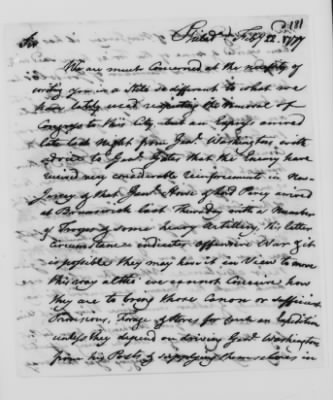 181
Philada. Feby 22. 1777
Sir
We are much Concerned at the necessity of
writing you in a Stile so different to what we
have lately used respecting the removal of
Congress to this City, but an Express arrived
late last Night from Genl. Washington, with
advice to Genl. Gates that the Enemy have
received very considerable reinforcements in New
Jersey & that Genl. Howe & Lord Percy arrived
at Brunswick last Thursday with a Number
of Troops & some heavy Artillery, this latter
Circumstance indicates offensive War & it
is possible they may have it in View to move
this way altho we cannot Conceive how
they are to bring those Canon or sufficient
Provisions, Forage & Stores for such an Expedition
unless they depend on driving Genl. Washington
from his Posts & supplying themselves in